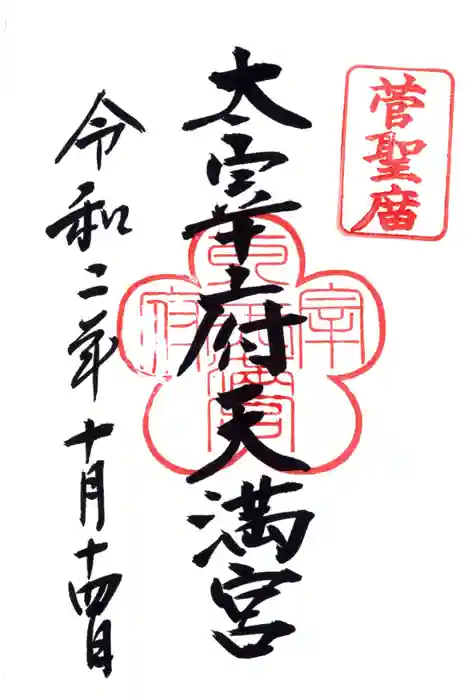 菅聖庿
太宰府天満宮
令和二年十月十四日